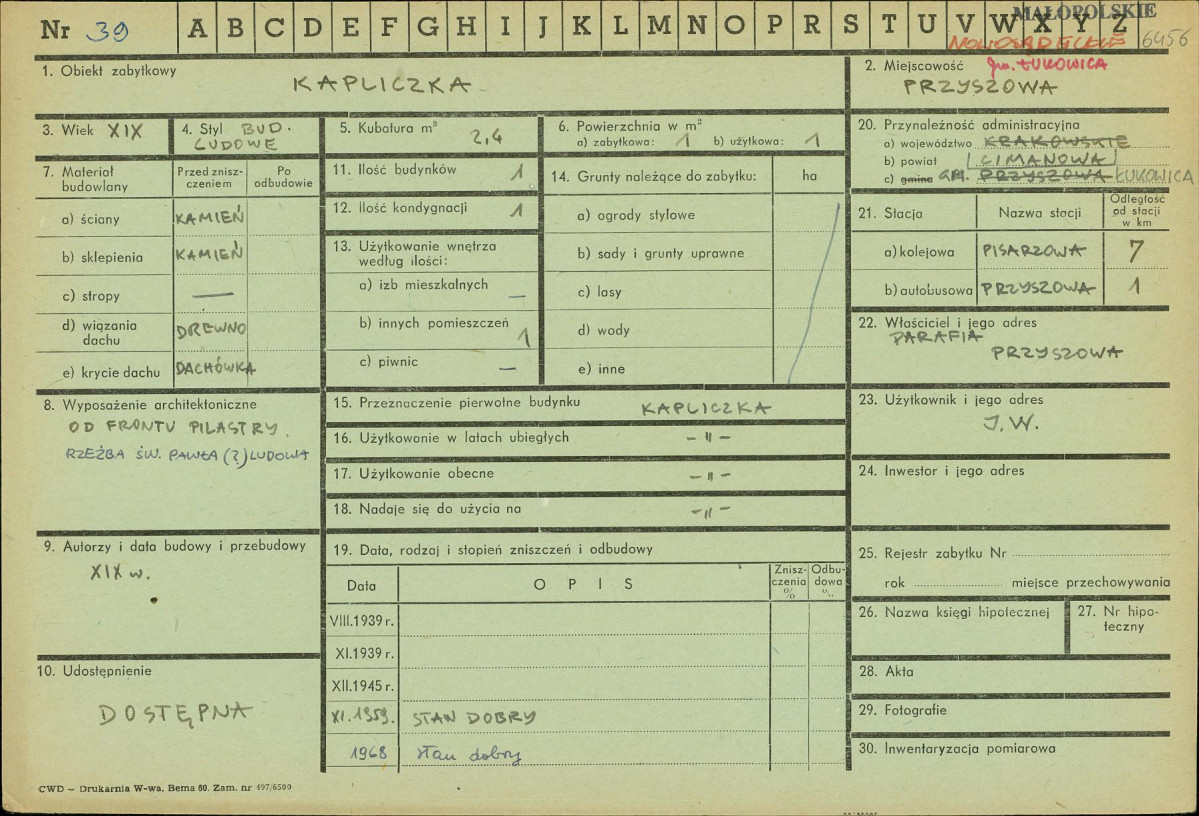 Nr 39 A B C D E F G H I J K L M N O P R S T U V W X Y Z
MAŁOPOLSKIE
NOWOSĄDECKIE 6456
1. Obiekt zabytkowy
KAPLICZKA
2. Miejscowość gm. ŁUKOWICA
PRZYSZOWA
3. Wiek XIX
4. Styl BUD.
LUDOWE
5. Kubatura m³
2,4
6. Powierzchnia w m²
a) zabytkowa: 1 b) użytkowa: 1
7. Materiał budowlany
Przed zniszczeniem
Po odbudowie
a) ściany KAMIEŃ
b) sklepienia KAMIEŃ
c) stropy —
d) wiązania dachu DREWNO
e) krycie dachu DACHÓWKA
8. Wyposażenie architektoniczne
OD FRONTU PILASTRY.
RZEŹBA ŚW. PAWŁA (?) LUDOWA
9. Autorzy i data budowy i przebudowy
XIX w.
10. Udostępnienie
DOSTĘPNA
11. Ilość budynków 1
12. Ilość kondygnacji 1
13. Użytkowanie wnętrza
według ilości:
a) izb mieszkalnych —
b) innych pomieszczeń 1
c) piwnic —
14. Grunty należące do zabytku: ha
a) ogrody stylowe
b) sady i grunty uprawne
c) lasy
d) wody
e) inne
15. Przeznaczenie pierwotne budynku KAPLICZKA
16. Użytkowanie w latach ubiegłych - " -
17. Użytkowanie obecne - " -
18. Nadaje się do użycia na - " -
19. Data, rodzaj i stopień zniszczeń i odbudowy
Data OPIS Zniszczenia % Odbudowa %
VIII.1939 r.
XI.1939 r.
XII.1945 r.
XI.1959. STAN DOBRY
1968 stan dobry
20. Przynależność administracyjna
a) województwo KRAKOWSKIE
b) powiat LIMANOWA
c) gmina GM. PRZYSZOWA ŁUKOWICA
21. Stacja Nazwa stacji Odległość od stacji w km
a) kolejowa PISARZOWA 7
b) autobusowa PRZYSZOWA 1
22. Właściciel i jego adres
PARAFIA
PRZYSZOWA
23. Użytkownik i jego adres
J.W.
24. Inwestor i jego adres
25. Rejestr zabytku Nr
rok miejsce przechowywania
26. Nazwa księgi hipotecznej
27. Nr hipoteczny
28. Akta
29. Fotografie
30. Inwentaryzacja pomiarowa
CWD – Drukarnia W-wa, Bema 60. Zam. nr 497/6500